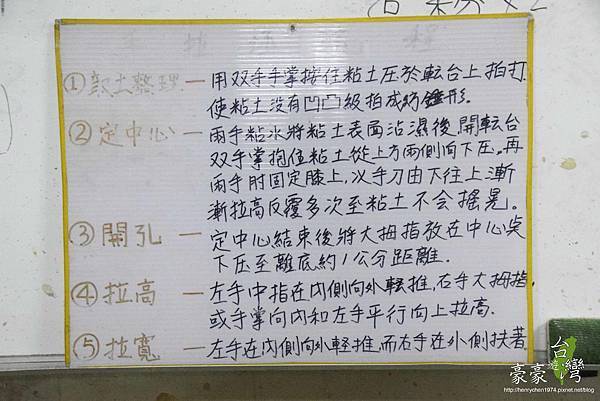 手拉坯流程
①黏土整理 — 用双手手掌按住粘土压於転台上拍打
使粘土没有凹凸級拍成紡錘形.
②定中心 — 兩手粘水將粘土表面沾濕後,開転台
双手掌抱住粘土從上方兩側向下压。再
兩手肘固定膝上,以手刀由下往上漸
漸拉高反覆多次至粘土不会搖晃。
③開孔 — 定中心結束後將大拇指放在中心点
下压至離底約1公分距離.
④拉高 — 左手中指在內側向外転推,右手大拇指
或手掌向內和左手平行向上拉高.
⑤拉寬 — 左手在內側向外輕推,而右手在外側扶著
豪豪遊台灣
http://henrychen1974.pixnet.net/blog